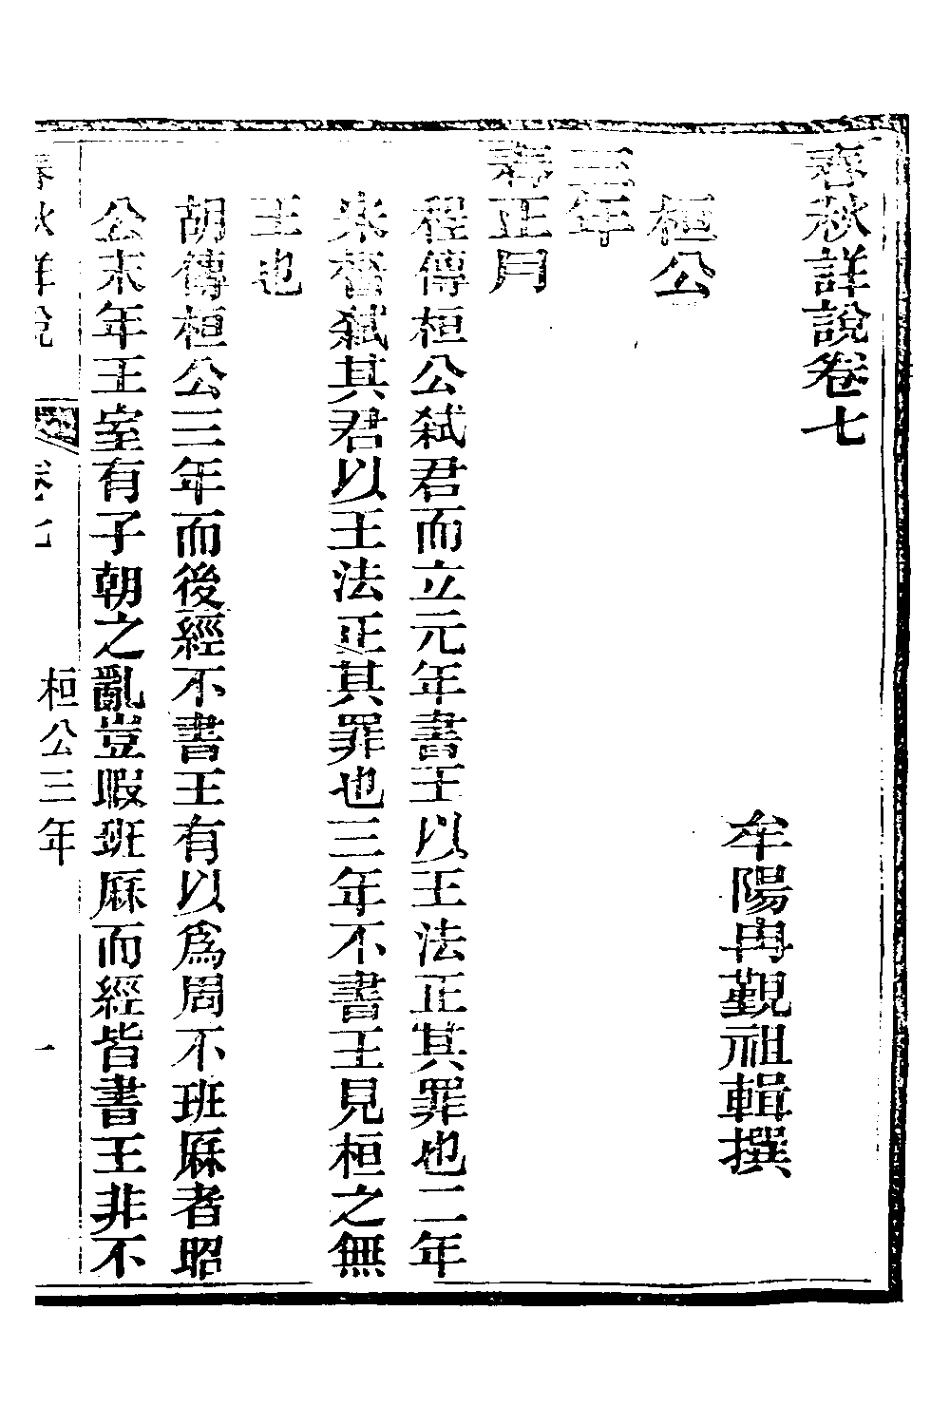 春秋詳說卷七
牟陽冉覲祖輯撰
桓公
三年
春正月
程傳桓公弒君而立元年書王以王法正其罪也二年
宋督弒其君以王法正其罪也三年不書王見桓之無
王也
胡傳桓公三年而後經不書王有以爲周不班厤者昭
公末年王室有子朝之亂豈暇班厤而經皆書王非不
春秋詳說 卷七 桓公三年 一